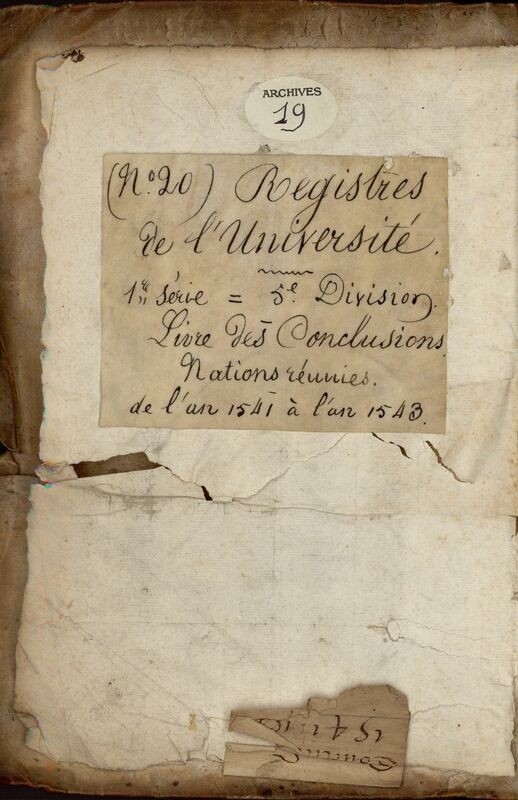 ARCHIVES
19
(Nº 20) Registres
de l'Université.
1re série = 5e Division.
Livre des Conclusions.
Nations réunies.
de l'an 1541 à l'an 1543.